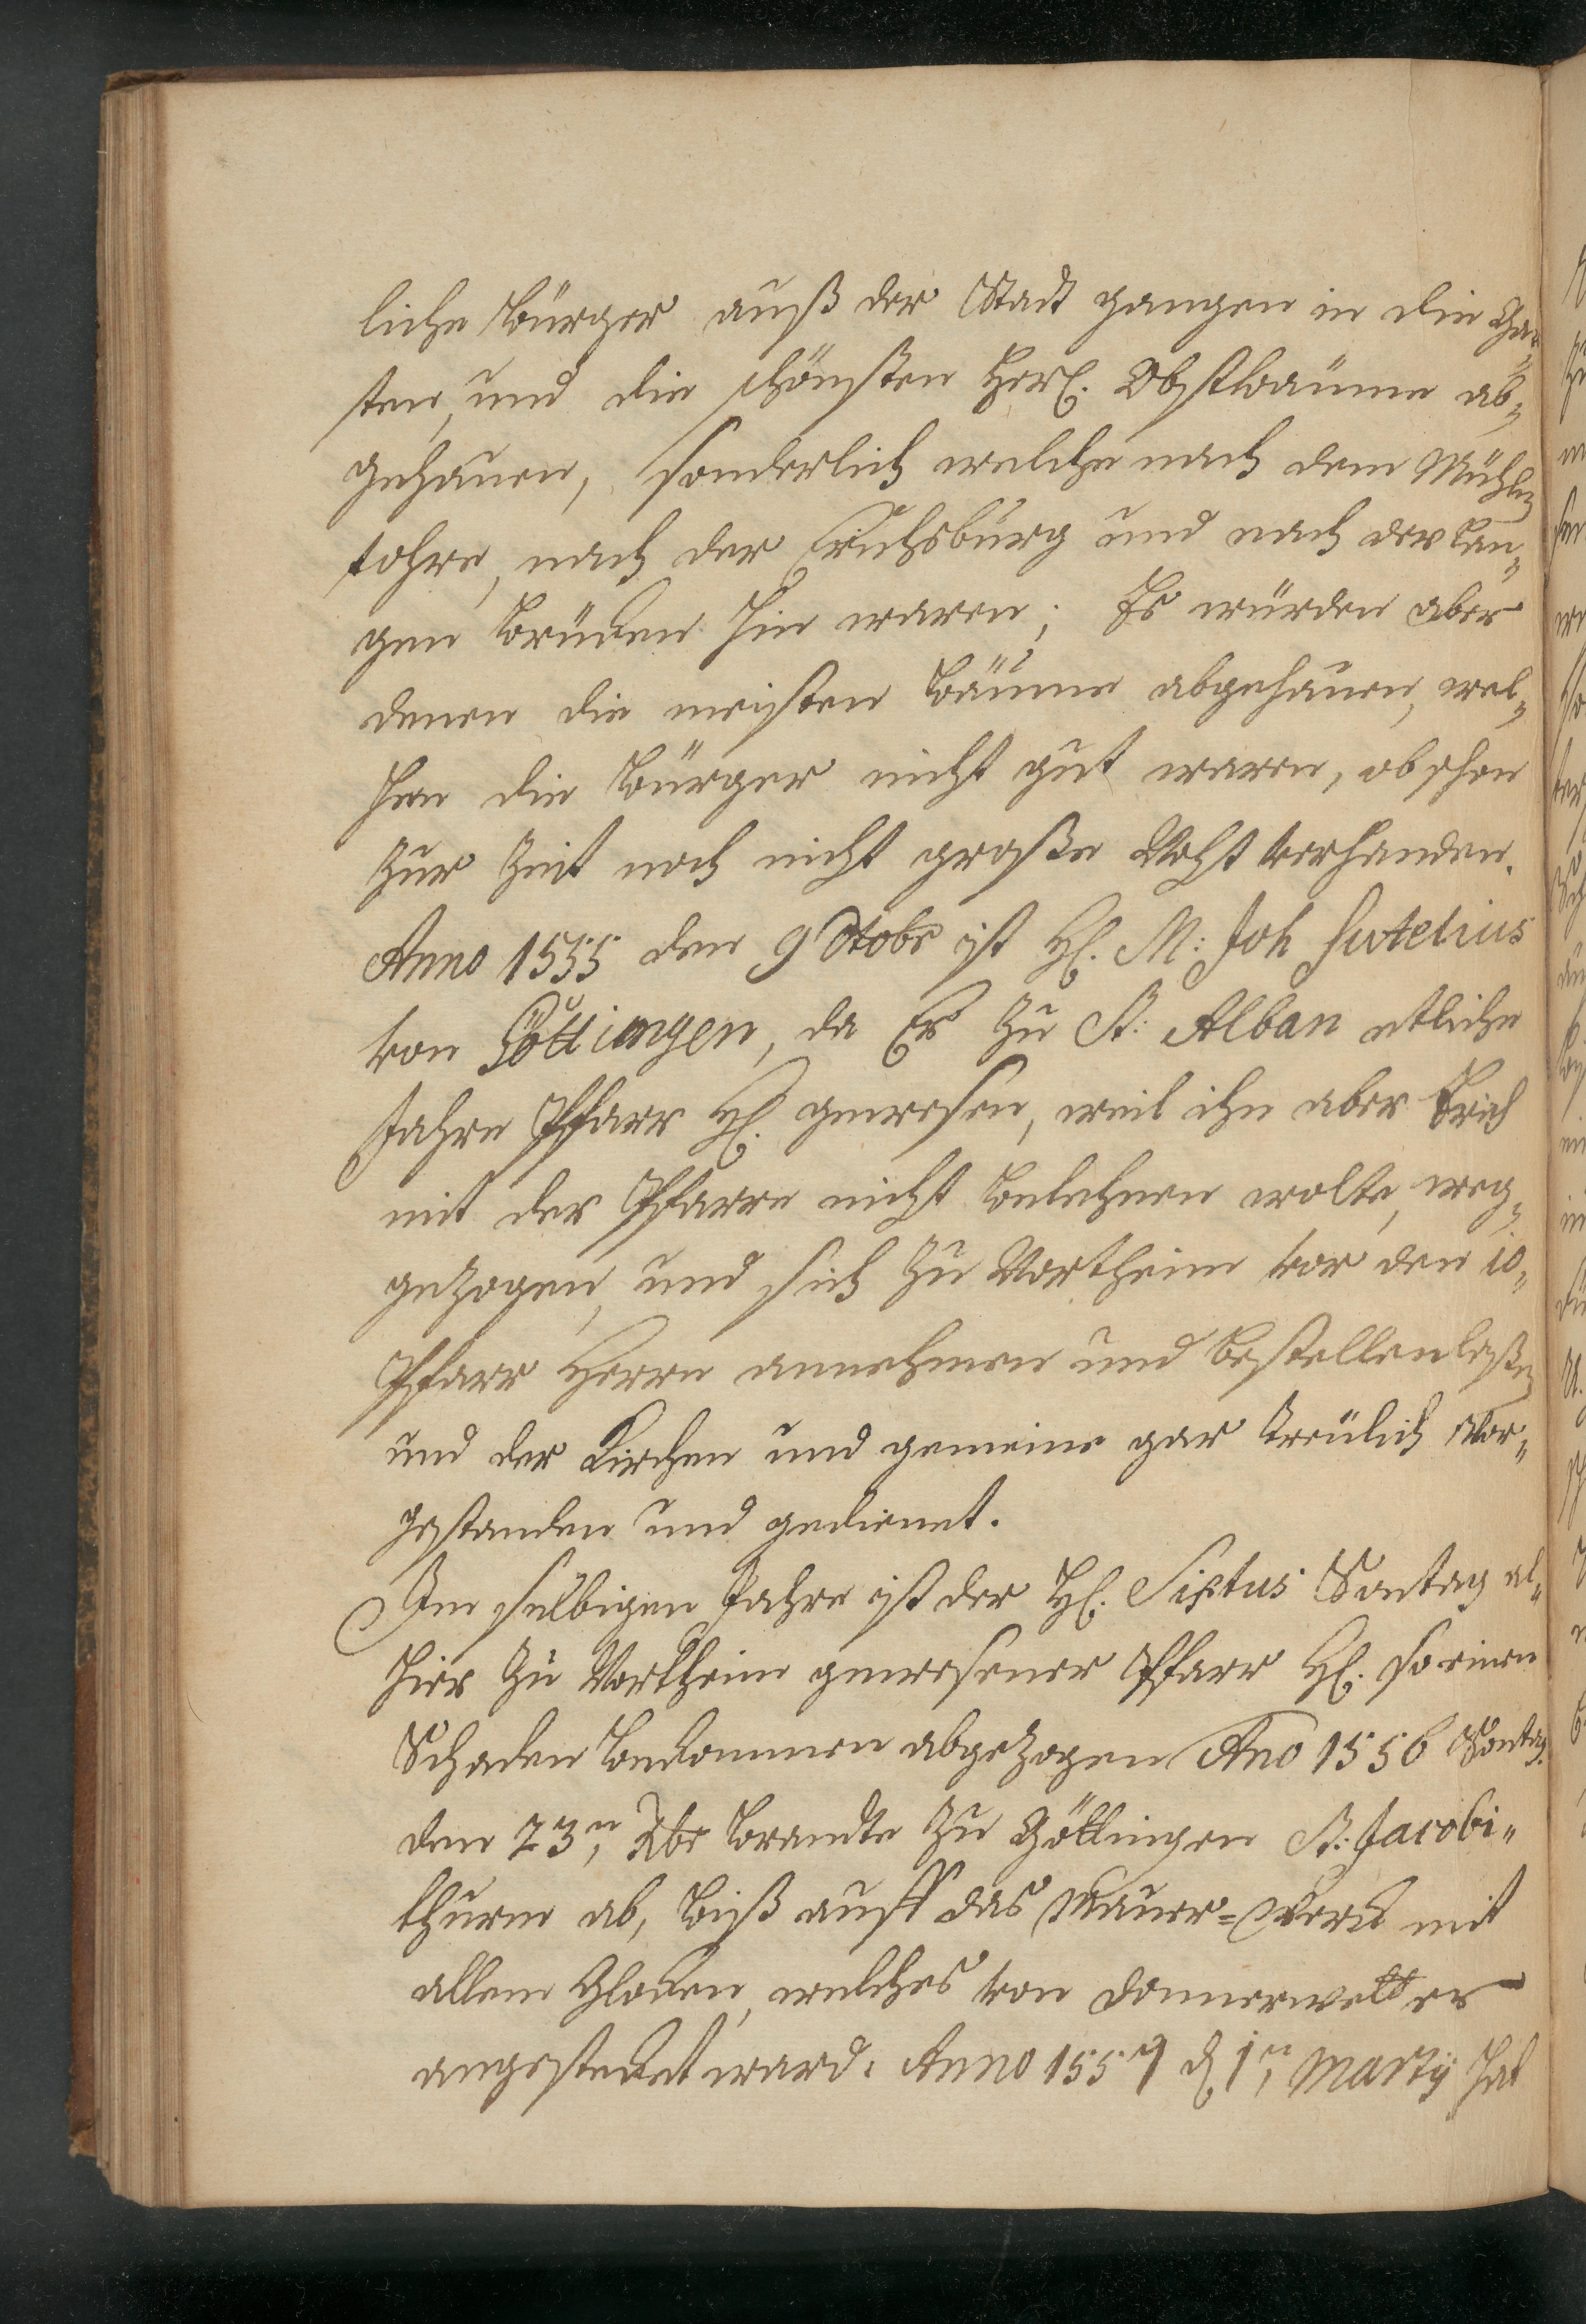 liche Bürger auß der Stadt gangen in die Gar„
ten, und die schönsten Herl. Obstbäume ab„
gehauen, sonderlich welche nach dem Mühlen
tohre, nach der Erichsburg und nach der lan„
gen Brücken hin waren; Es würden aber
denen die meisten Bäume abgehauen, wel„
chen die Bürger nicht gut waren, obschon
zur Zeit noch nicht große Noht verhanden.
Anno 1555 den 9 Octobr ist H. M: Joh Sutelius
von Göttingen, da Er zu St: Alban etliche
Jahre Pfarr H. gewesen, weil ihn aber Erich
mit der Pfarre nicht belehnen wolte, weg„
gezogen, und sich zu Northeim vor den 10„
Pfarr Herrn annehmen und bestellen laßen
und der Kirchen und gemeine gar treulich vor„
gestanden und gedienet.
Im selbigen Jahre ist der H. Sixtus Sontag al„
hier zu Northeim gewesener Pfarr H. so einen
Schaden bekommen abgezogen Ano 1556 Sontag.
den 23n, Xbr brandte zu Göttingen St: Jacobi„
thurm ab, biß auff das Mauer=Werck mit
allem Glocken, welches von Donnerwetter
angestecket ward. Anno 1557 d 1n, Martij hat